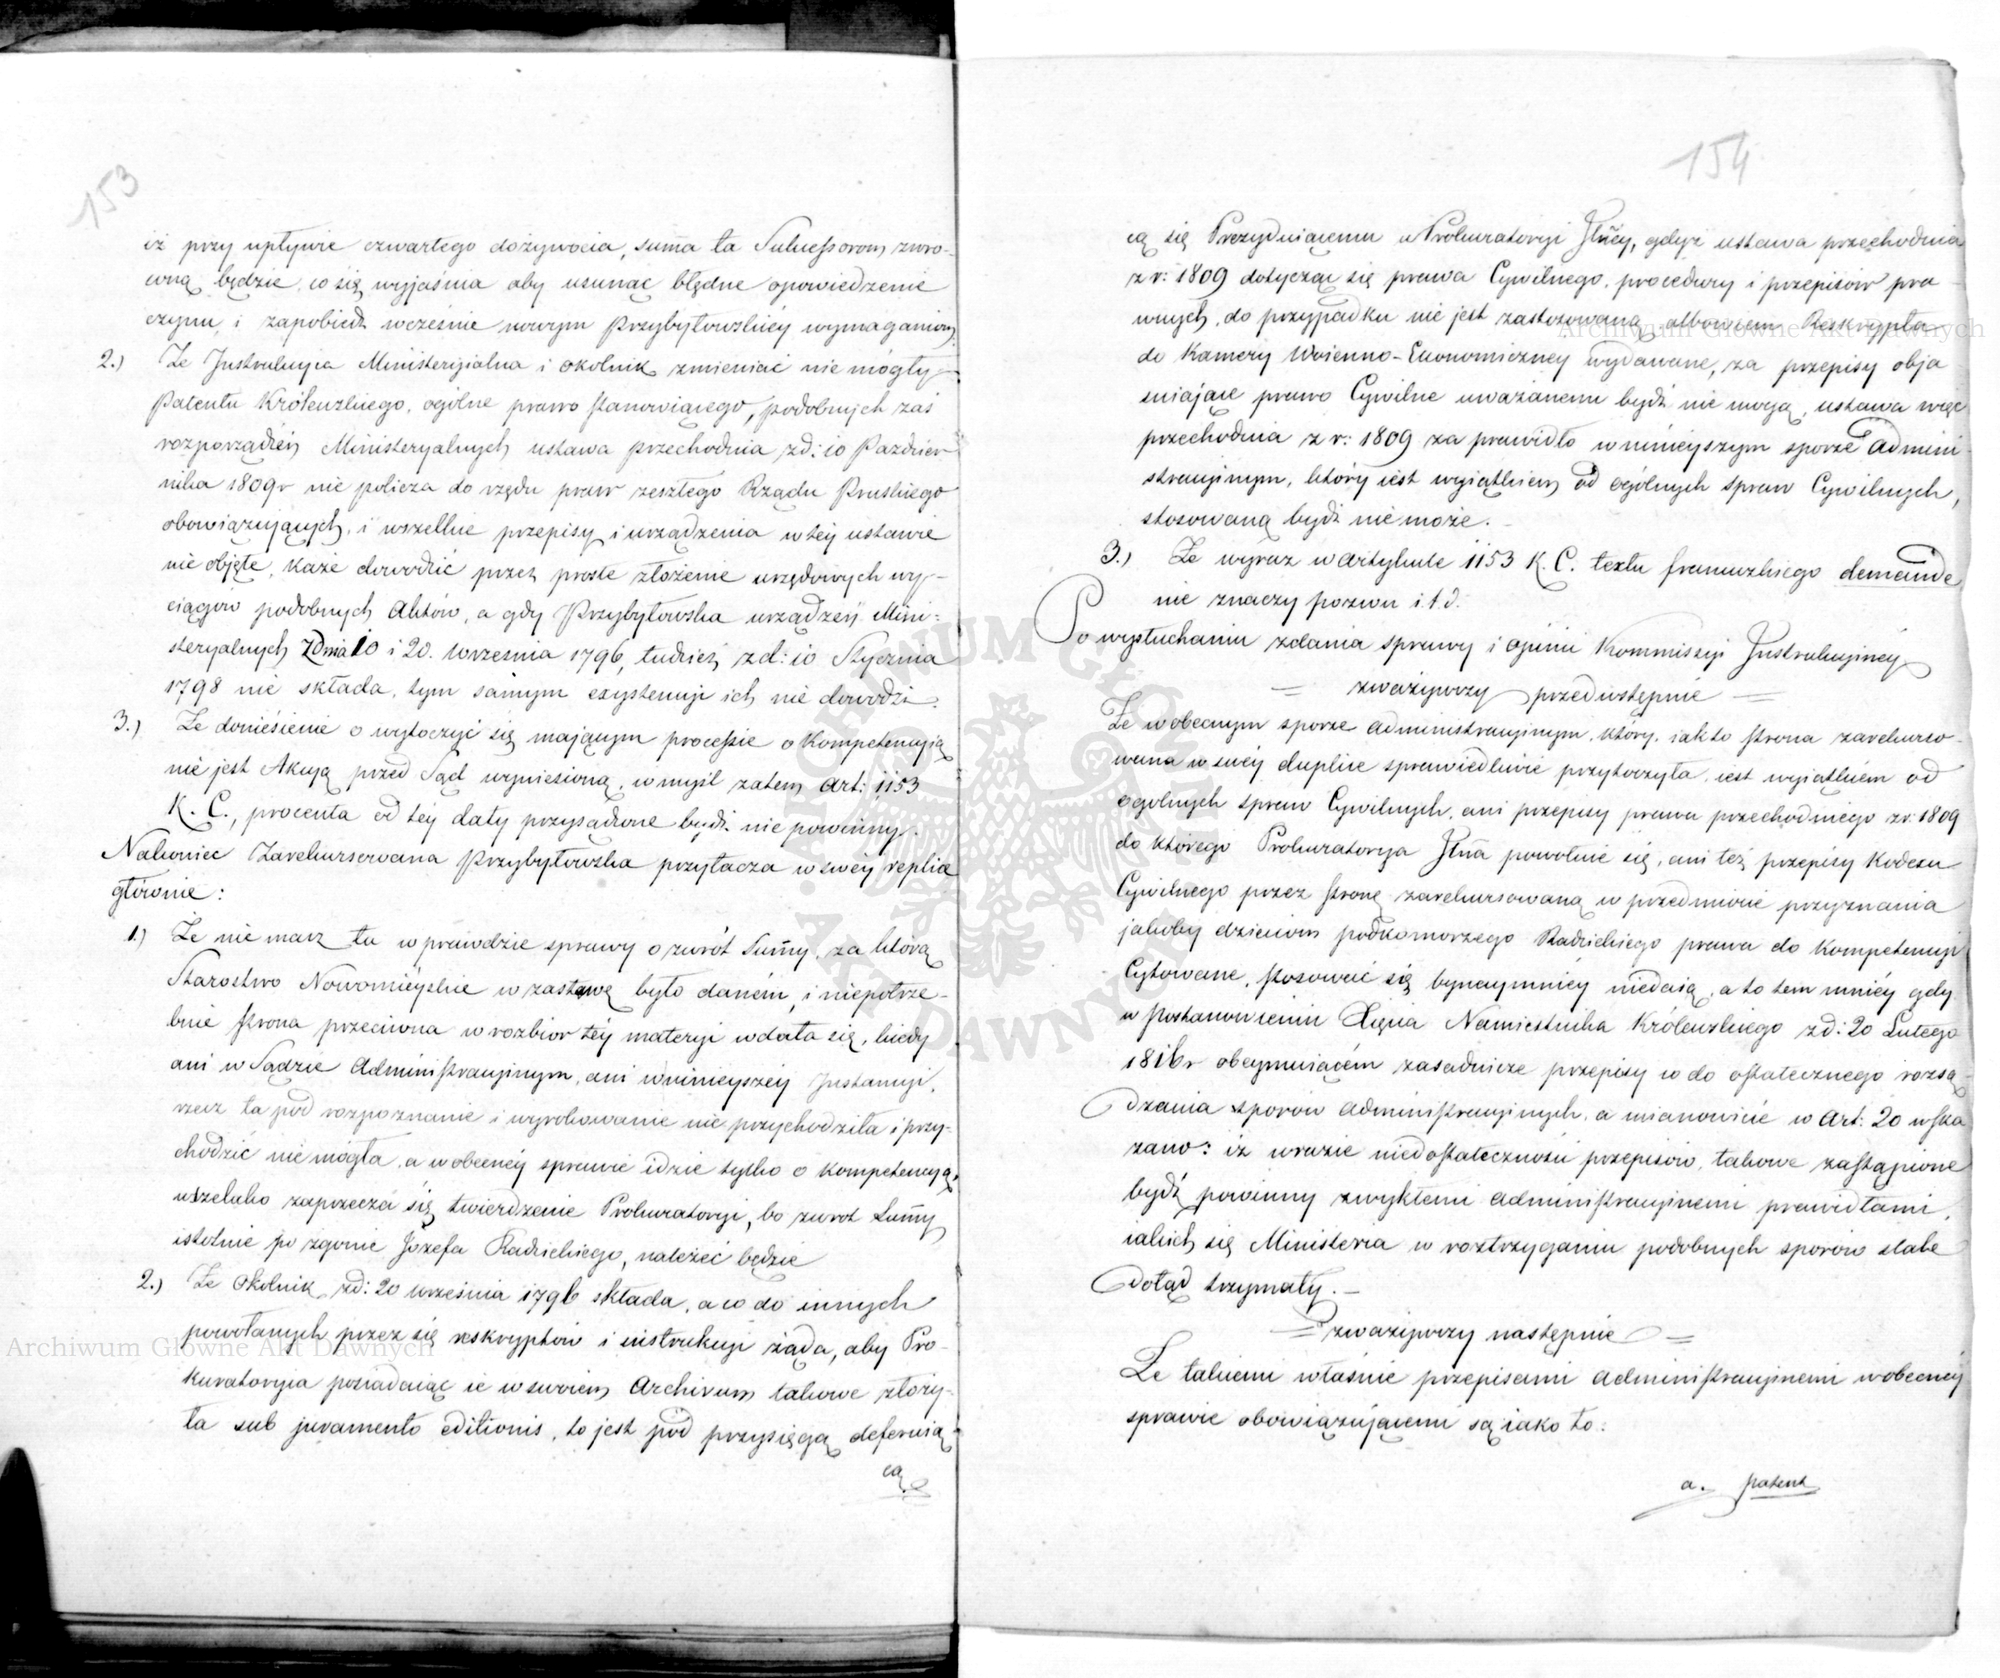 153
iż przy upływie czwartego dożywocia, suma ta Sukcessorom zwro-
coną będzie, co się wyjaśnia aby usunąć błędne opowiedzenie
czynu, i zapobiedz wcześnie nowym Przybyłowskiéy wymaganiom.
2.) Że Instrukcyia Ministeryialna i okolnik zmieniać nie mogły
Patentu Królewskiego, ogólne prawo stanowiącego, podobnych zaś
rozporządzeń Ministeryalnych ustawa przechodnia zd: 10 Pazdzier-
nika 1809r nie policza do rzędu praw zeszłego Rządu Pruskiego
obowiązujących, i wszelkie przepisy i urządzenia w téy ustawie
nie objęte, każe dowodzić przez proste złożenie urzędowych wy-
ciągów podobnych Aktów, a gdy Przybyłowska urządzeń Mini-
steryalnych Zdnia 10 i 20. Września 1796, tudzież zd: 10 Stycznia
1798 nie składa, tym samym exystencyi ich nie dowodzi.
3.) Że doniesienie o wytoczyć się mającym processie o Kompetencyią
nie jest Akcyą przed Sąd wyniesioną, w myśl zatem Art: 1153
K. C., procenta od téy daty przysądzone bydź nie powinny.
Nakoniec Zarekursowana Przybyłowska przytacza w swéy replice
głównie:
1.) Że nie masz tu w prawdzie sprawy o zwrót Summy, za którą
Starostwo Nowomieyskie w zastawę było daném, i niepotrze-
bnie strona przeciwna w rozbiór téy materyi wdała się, kiedy
ani w Sądzie Administracyinym, ani w ninieyszéy Instancyi,
rzecz ta pod rozpoznanie i wyrokowanie nie przychodziła i przy-
chodzić nie mogła, a w obecnéy sprawie idzie tylko o kompetencyą,
wszelako zaprzecza się twierdzenie Prokuratoryi, bo zwrot Summy
istotnie po zgonie Józefa Radzickiego, należeć będzie
2.) Że Okolnik zd: 20 września 1796 składa, a co do innych
powołanych przez się reskryptów i instrukcyi żąda, aby Pro-
kuratorya posiadaiąc ie w swoiem Archivum takowe złoży-
ła sub juramento editionis, to jest pod przysięgą deferuią-
cą
154
cą się Prezyduiącemu w Prokuratoryi Jłnéy, gdyż ustawa przechodnia
z r: 1809 dotycząc się prawa Cywilnego, procedury i przepisów pra-
wnych, do przypadku nie jest zastosowaną, albowiem Reskrypta
do Kamery Woienno-Ekonomiczney wydawane, za przepisy obja
śniające prawo Cywilne uważanemi bydź nie mogą, ustawa więc
przechodnia z r: 1809 za prawidło w ninieyszym sporze Admini-
stracyinym, który iest wyiątkiem od ogólnych spraw Cywilnych,
stosowaną bydź nie może.
3.) Że wyraz w Artykule 1153 K. C. textu francuzkiego demande
nie znaczy pozwu i.t.d.
Po wysłuchaniu zdania sprawy i opinii Kommissyi Instrukcyinéy
zważywszy przedwstępnie
Że w obecnym sporze administracyinym, który, iak to strona zarekurso-
wana w swéy duplice sprawiedliwie przytoczyła, iest wyiątkiem od
ogolnych spraw Cywilnych, ani przepisy prawa przechodniego zr: 1809
do którego Prokuratorya Jłna powołuie się, ani też przepisy Kodexu
Cywilnego przez stronę zarekursowaną w przedmiocie przyznania
jakoby dzieciom podkomorzego Radzickiego prawa do Kompetencyi
Cytowane, stosować się bynaymniéy niedaią, a to tem mniéy gdy
w postanowieniu Xięcia Namiestnika Królewskiego zd: 20 Lutego
1816r obeymuiącém zasadnicze przepisy co do ostatecznego rozsą-
dzania sporów administracyinych, a mianowicie w Art: 20 wska
zano: iż w razie niedostateczności przepisów, takowe zastąpione
bydź powinny zwykłemi administracyinemi prawidłami,
iakich się Ministeria w roztrzyganiu podobnych sporów stale
dotąd trzymały.
zważywszy następnie
Że takiemi właśnie przepisami administracyinemi w obecnéy
sprawie obowiązującemi są iako to:
a. patent
Archiwum Główne Akt Dawnych
Archiwum Główne Akt Dawnych
ARCHIWUM GŁÓWNE AKT DAWNYCH